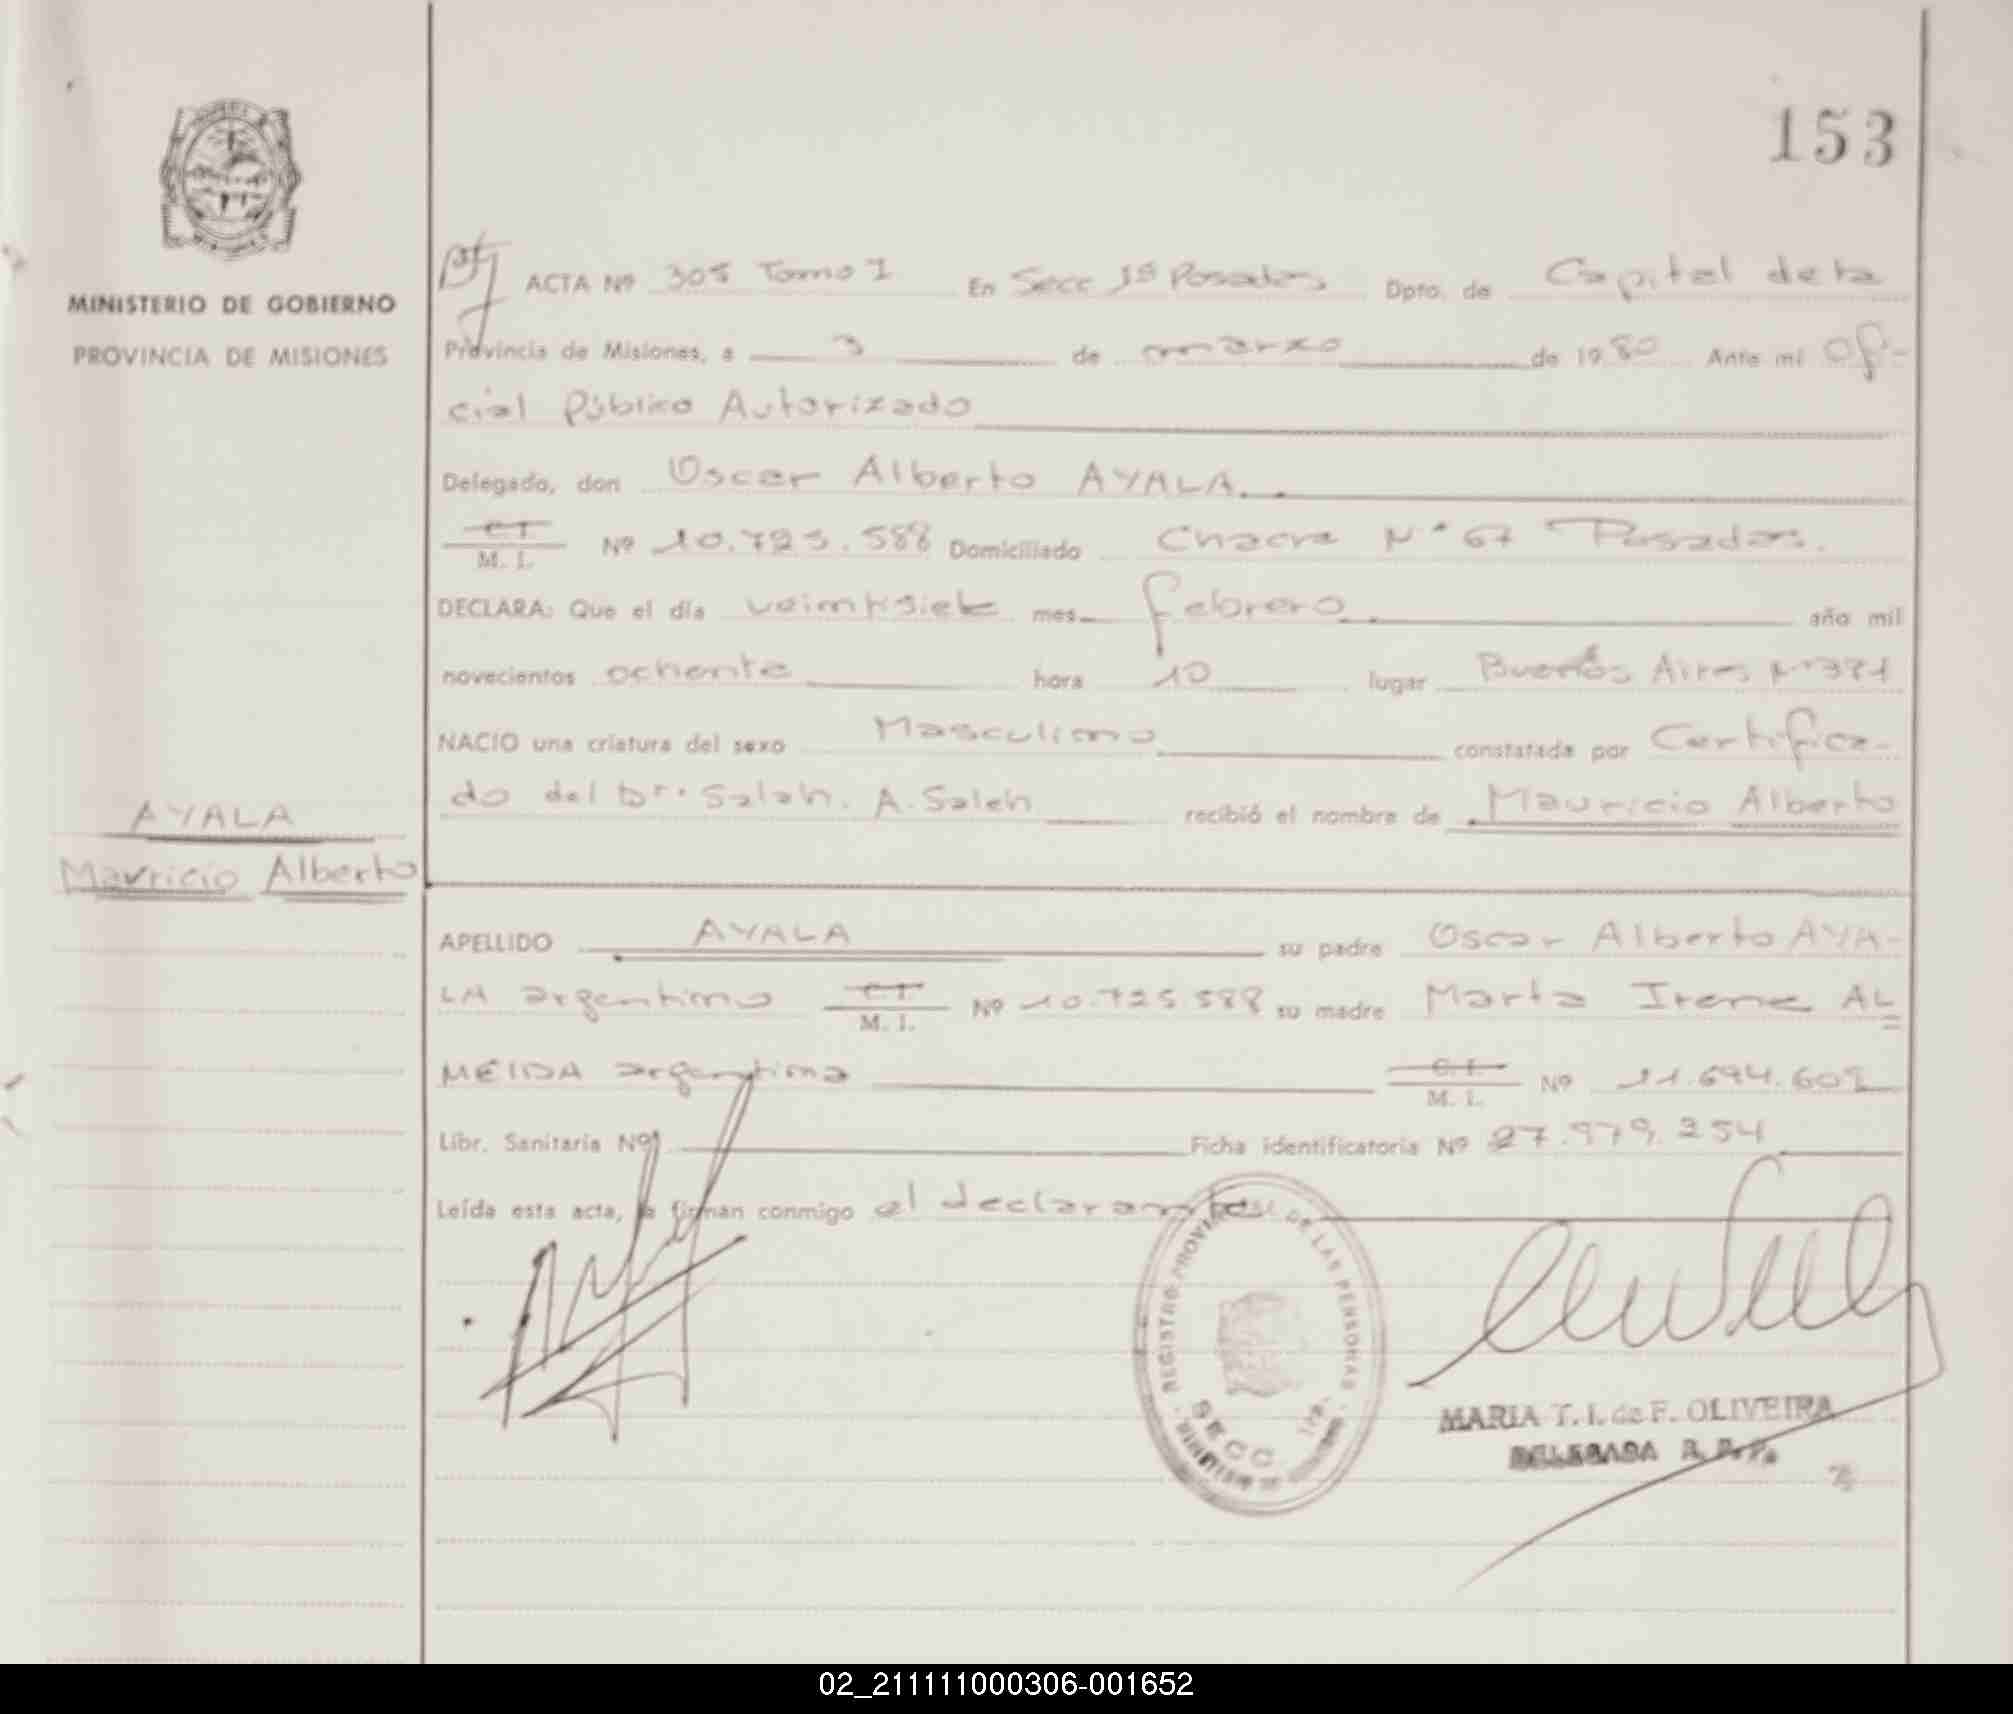 153
MINISTERIO DE GOBIERNO
PROVINCIA DE MISIONES
ACTA Nº 305 Tomo I En Secc 1ª Posadas Dpto. de Capital de la
Provincia de Misiones, a 3 de marzo de 1980 Ante mi Ofi-
cial Público Autorizado
Delegado, don Oscar Alberto AYALA.
C.I.
M. I. Nº 10.725.588 Domiciliado Chacra Nº 67 Posadas.
DECLARA: Que el día veimtisiete mes febrero año mil
novecientos ochenta hora 10 lugar Buenos Aires Nº 381
NACIO una criatura del sexo Masculino constatada por Certifica-
do del Dr. Salah. A. Saleh recibió el nombre de Mauricio Alberto
AYALA
Mauricio Alberto
APELLIDO AYALA su padre Oscar Alberto AYA-
LA argentino C.I.
M. I. Nº 10.725.588 su madre Marta Irene AL
MEIDA argentina C.I.
M. I. Nº 11.694.602
Libr. Sanitaria Nº Ficha identificatoria Nº 27.979.254
Leída esta acta, la firman conmigo el declarante
REGISTRO PROVINCIAL DE LAS PERSONAS
SECC 1ra.
MARIA T. I. de F. OLIVEIRA
DELEGADA R. P. P.
02_211111000306-001652